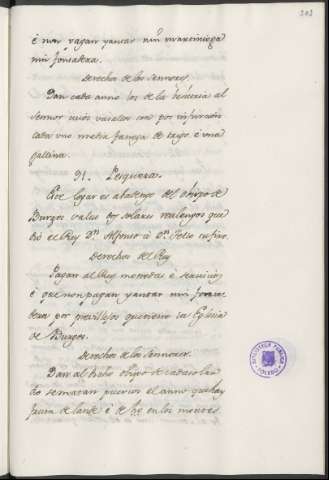 203
é non pagan yantar nin martiniega
nin fonsadera.
Derechos de los Sennores.
Dan cada anno los de la behetria al
Sennor cuios vasalos son por infurcion
cada uno media fanega de trigo é una
gallina.
91. Pesquera.
Este logar es abadengo del obispo de
Burgos salvo dos solares realengos que
dió el Rey Dn. Alfonso á Dn. Tello su fixo.
Derechos del Rey
Pagan al Rey monedas é servicios
é que non pagan yantar nin fonsa-
dera por previllejos que tiene la Eglesia
de Burgos.
Derechos de los Sennores.
Dan al dicho obispo de cada solar
do se matan puercos el anno que hay
de lande é de hé en los montes
BIBLIOTECA PUBLICA
TOLEDO